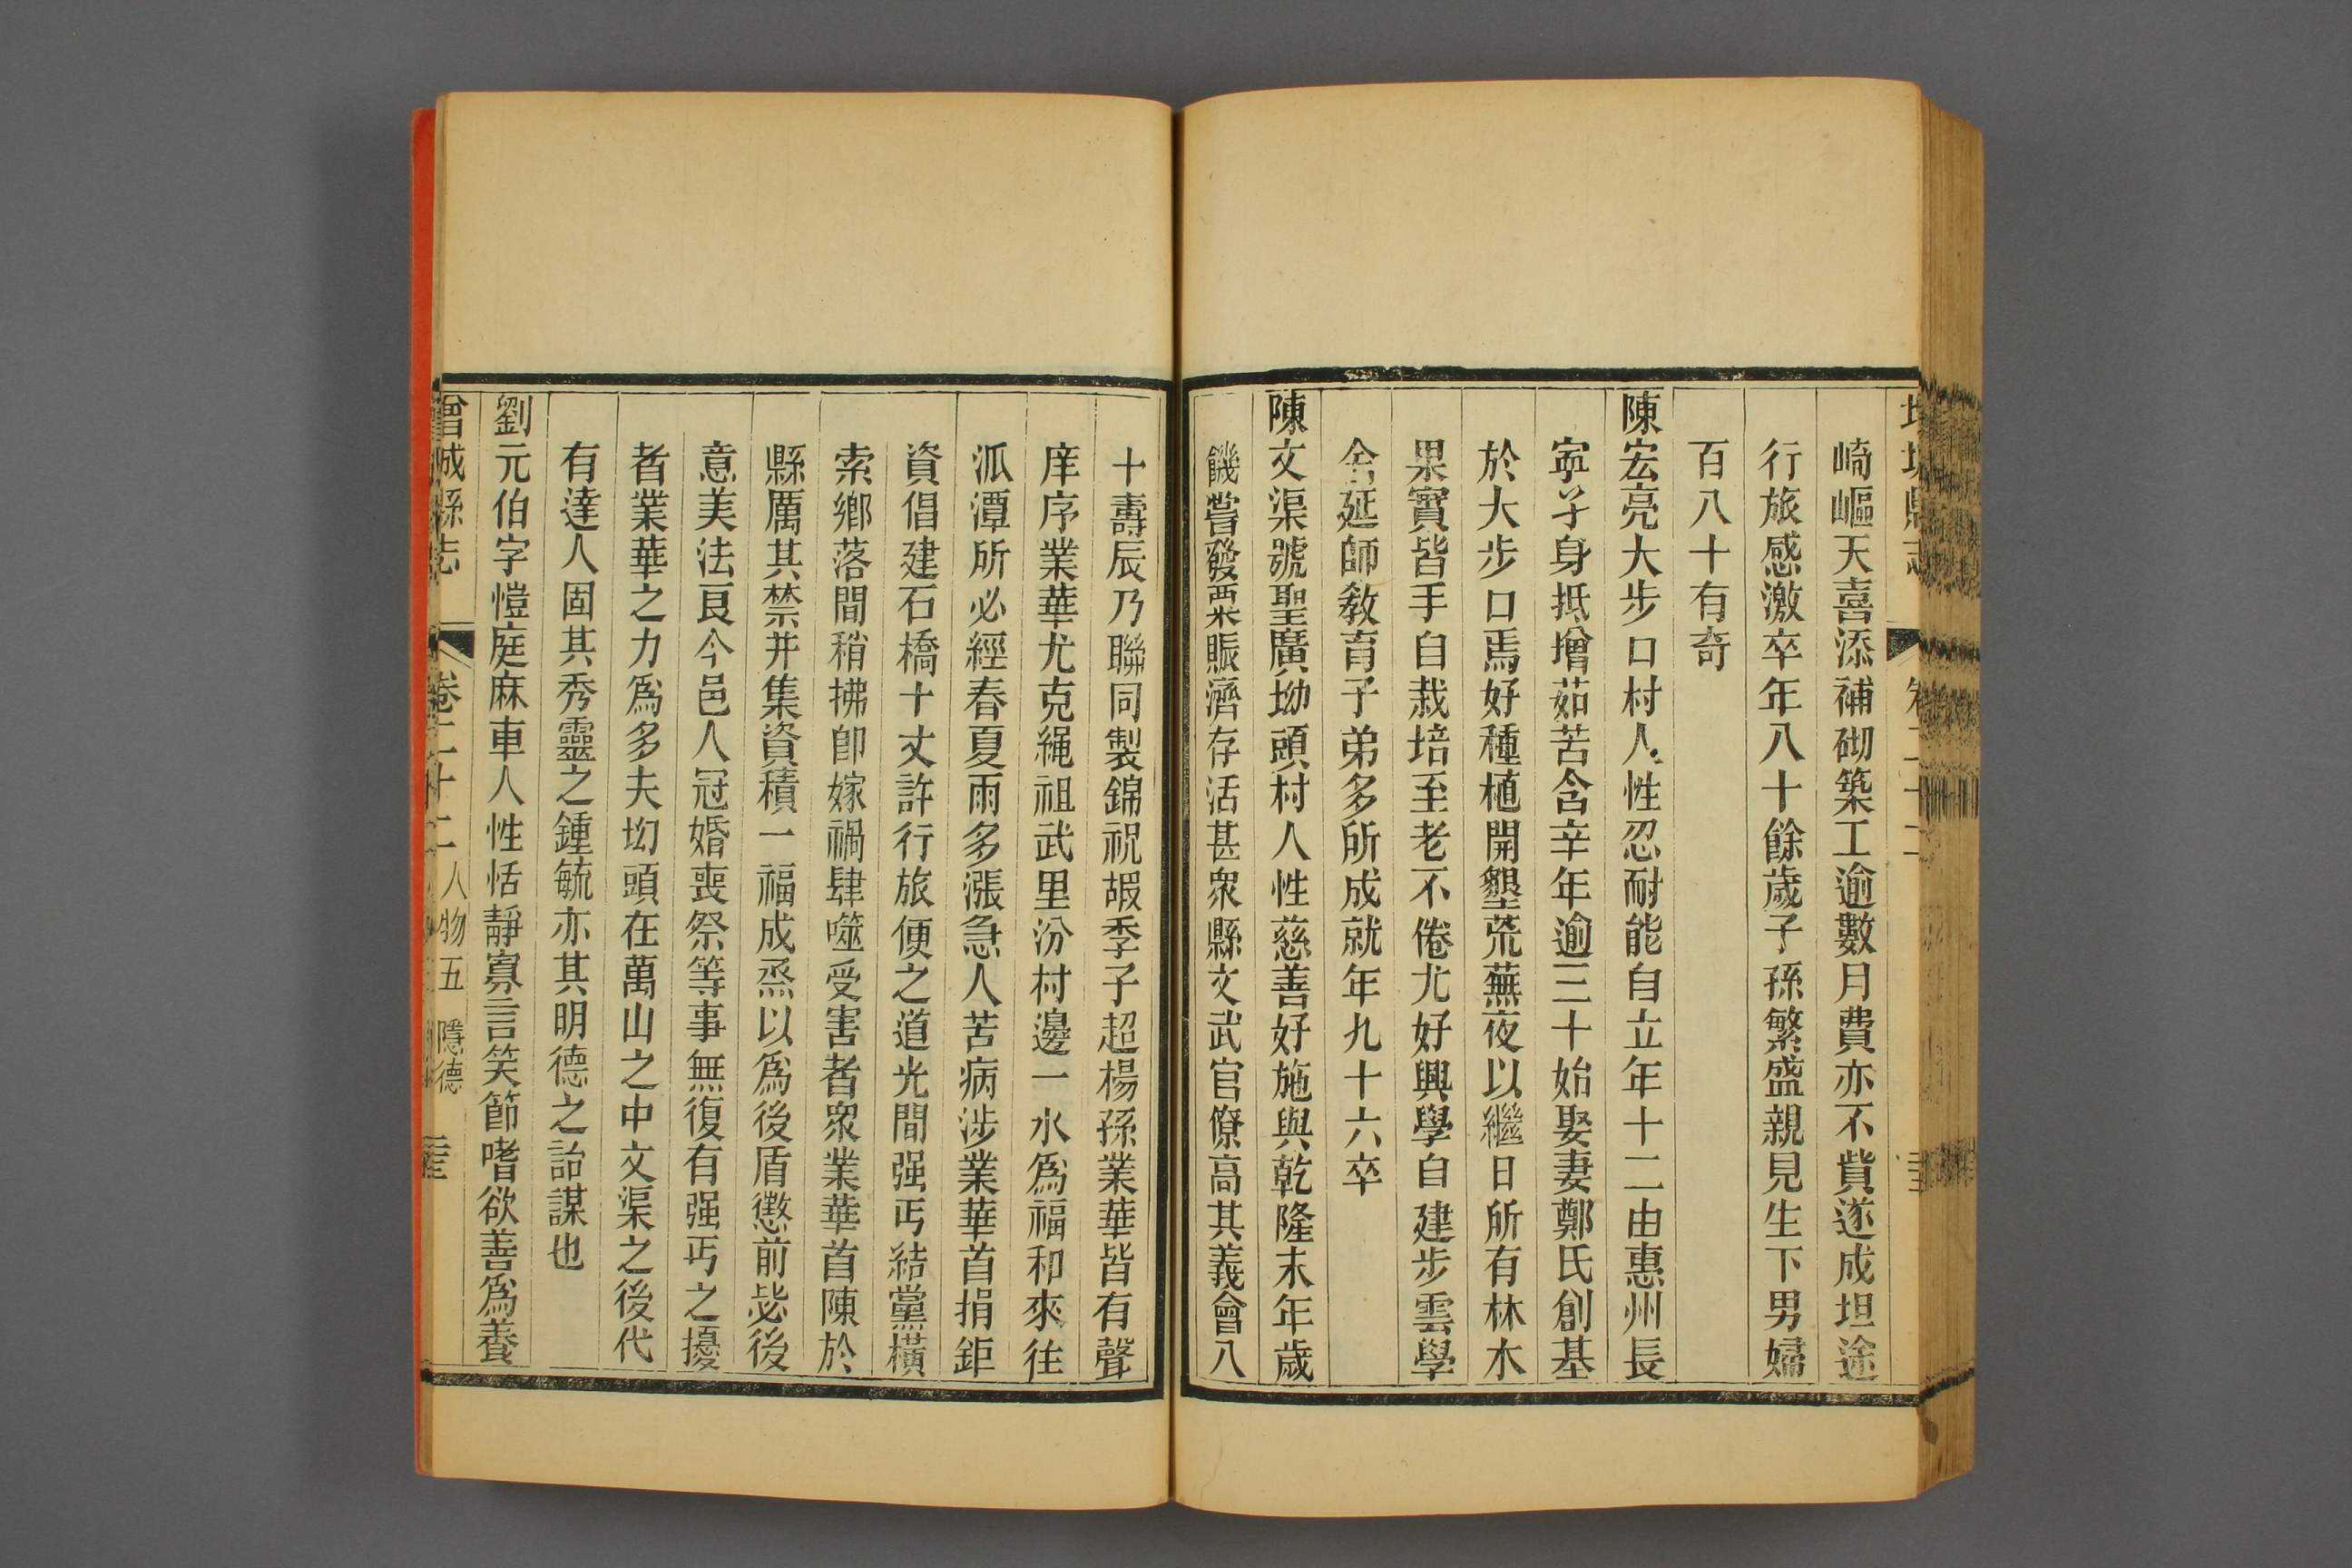 崎嶇天喜添補砌築工逾數月費亦不貲遂成坦途
行旅感激卒年八十餘歲子孫繁盛親見生下男婦
百八十有奇
陳宏亮大步口村人性忍耐能自立年十二由惠州長
寧孑身抵增茹苦含辛年逾三十始娶妻鄭氏創基
於大步口焉好種植開墾荒蕪夜以繼日所有林木
果實皆手自栽培至老不倦尤好興學自建步雲學
舍延師敎育子弟多所成就年九十六卒
陳文渠號聖廣坳頭村人性慈善好施與乾隆末年歲
饑嘗發粟賑濟存活甚衆縣文武官僚高其義會八
十壽辰乃聯同製錦祝嘏季子超楊孫業華皆有聲
庠序業華尤克繩祖武里汾村邊一水爲福和來往
派潭所必經春夏雨多漲急人苦病涉業華首捐鉅
資倡建石橋十丈許行旅便之道光間强丐結黨橫
索鄉落間稍拂卽嫁禍肆噬受害者衆業華首陳於
縣厲其禁幷集資積一福成烝以爲後盾懲前毖後
意美法良今邑人冠婚喪祭等事無復有强丐之擾
者業華之力爲多夫坳頭在萬山之中文渠之後代
有達人固其秀靈之鍾毓亦其明德之詒謀也
劉元伯字愷庭麻車人性恬靜寡言笑節嗜欲善爲養
增城縣志 卷二十二 人物五 隱德